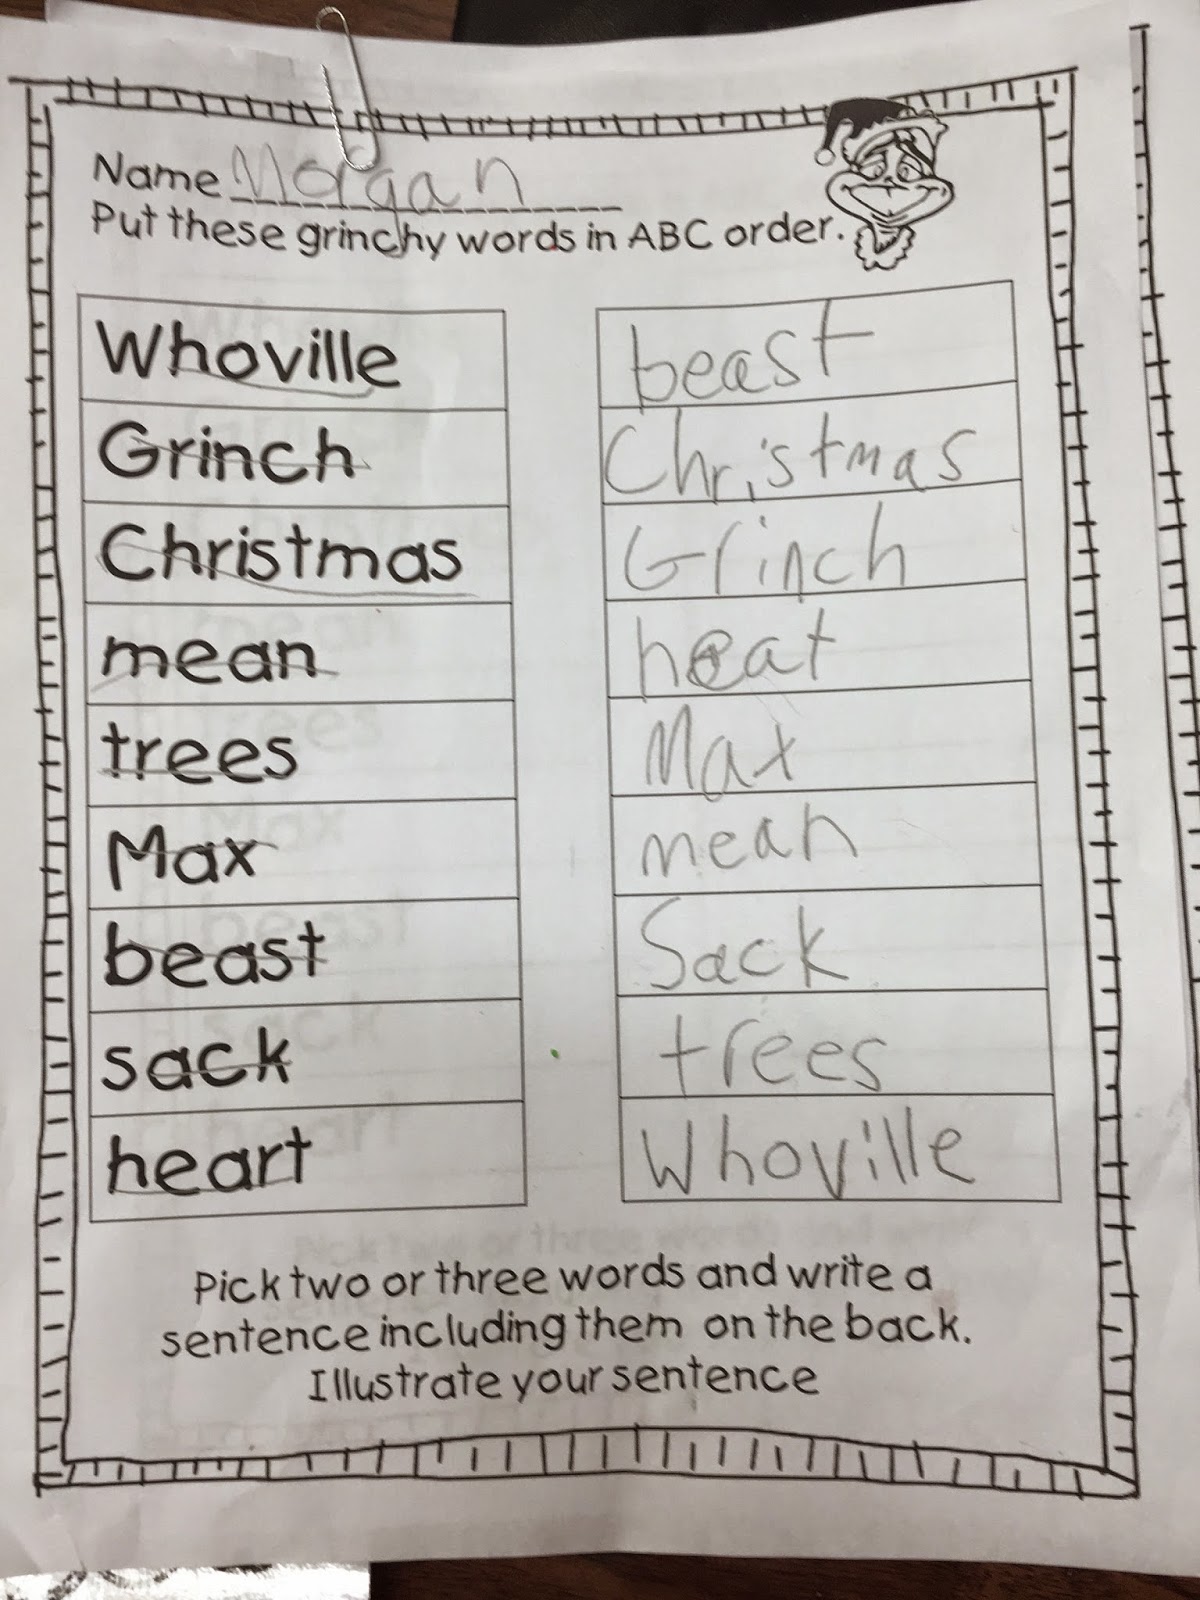 Name Morgan
Put these grinchy words in ABC order.
Whoville
Grinch
Christmas
mean
trees
Max
beast
sack
heart
beast
Christmas
Grinch
heat
Max
mean
Sack
trees
Whoville
Pick two or three words and write a
sentence including them on the back.
Illustrate your sentence